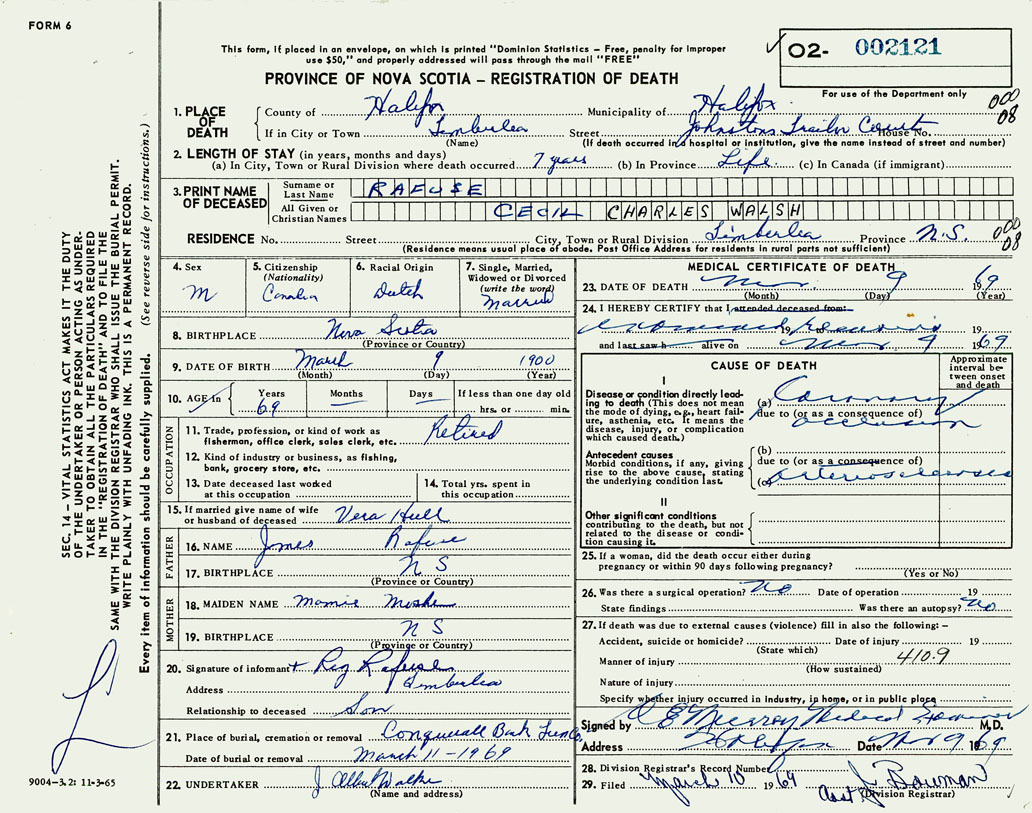 FORM 6
This form, if placed in an envelope, on which is printed "Dominion Statistics – Free, penalty for improper
use $50," and properly addressed will pass through the mail "FREE"
PROVINCE OF NOVA SCOTIA – REGISTRATION OF DEATH
O2- 002121
For use of the Department only
000
08
1. PLACE OF DEATH
County of Halifax Municipality of Halifax
If in City or Town Timberlea Street Johnstons Trailor Court House No.
(Name) (If death occurred in a hospital or institution, give the name instead of street and number)
2. LENGTH OF STAY (in years, months and days)
(a) In City, Town or Rural Division where death occurred 7 years (b) In Province Life (c) In Canada (if immigrant)
3. PRINT NAME OF DECEASED
Surname or Last Name RAFUSE
All Given or Christian Names CECIL CHARLES WALSH
RESIDENCE No. Street City, Town or Rural Division Timberlea Province N.S.
000
08
(Residence means usual place of abode. Post Office Address for residents in rural parts not sufficient)
4. Sex
M
5. Citizenship
(Nationality)
Canadian
6. Racial Origin
Dutch
7. Single, Married,
Widowed or Divorced
(write the word)
Married
8. BIRTHPLACE Nova Scotia
(Province or Country)
9. DATE OF BIRTH March 9 1900
(Month) (Day) (Year)
10. AGE in Years Months Days If less than one day old
69 hrs. or min.
OCCUPATION
11. Trade, profession, or kind of work as
fisherman, office clerk, sales clerk, etc. Retired
12. Kind of industry or business, as fishing,
bank, grocery store, etc.
13. Date deceased last worked
at this occupation
14. Total yrs. spent in
this occupation
15. If married give name of wife
or husband of deceased Vera Hull
FATHER
16. NAME James Rafuse
17. BIRTHPLACE N S
(Province or Country)
MOTHER
18. MAIDEN NAME Mamie
19. BIRTHPLACE N S
(Province or Country)
20. Signature of informant + Reg Rafuse
Address Timberlea
Relationship to deceased Son
21. Place of burial, cremation or removal Conquerall Bank Lun Co.
Date of burial or removal March 11 - 1969
22. UNDERTAKER J Albert Walker
(Name and address)
MEDICAL CERTIFICATE OF DEATH
23. DATE OF DEATH Mar 9 1969
(Month) (Day) (Year)
24. I HEREBY CERTIFY that I attended deceased from:
19 19
and last saw h alive on Mar 9 1969
CAUSE OF DEATH
Approximate
interval be-
tween onset
and death
I
Disease or condition directly lead-
ing to death (This does not mean
the mode of dying, e.g., heart fail-
ure, asthenia, etc. It means the
disease, injury, or complication
which caused death.)
(a) Coronary
due to (or as a consequence of)
occlusion
Antecedent causes
Morbid conditions, if any, giving
rise to the above cause, stating
the underlying condition last.
(b)
due to (or as a consequence of)
(c) arteriosclerosis
II
Other significant conditions
contributing to the death, but not
related to the disease or condi-
tion causing it.
25. If a woman, did the death occur either during
pregnancy or within 90 days following pregnancy?
(Yes or No)
26. Was there a surgical operation? No Date of operation 19
State findings Was there an autopsy? No
27. If death was due to external causes (violence) fill in also the following: –
Accident, suicide or homicide? Date of injury 19
(State which)
Manner of injury 410.9
(How sustained)
Nature of injury
Specify whether injury occurred in industry, in home, or in public place
Signed by Medical Examiner M.D.
Address Halifax Date Mar 9 1969
28. Division Registrar's Record Number
29. Filed March 10 1969 Asst. J. Bowman
(Division Registrar)
SEC. 14 – VITAL STATISTICS ACT MAKES IT THE DUTY
OF THE UNDERTAKER OR PERSON ACTING AS UNDER-
TAKER TO OBTAIN ALL THE PARTICULARS REQUIRED
IN THE "REGISTRATION OF DEATH" AND TO FILE THE
SAME WITH THE DIVISION REGISTRAR WHO SHALL ISSUE THE BURIAL PERMIT.
WRITE PLAINLY WITH UNFADING INK. THIS IS A PERMANENT RECORD.
Every item of information should be carefully supplied. (See reverse side for instructions.)
9004-3.2: 11-3-65